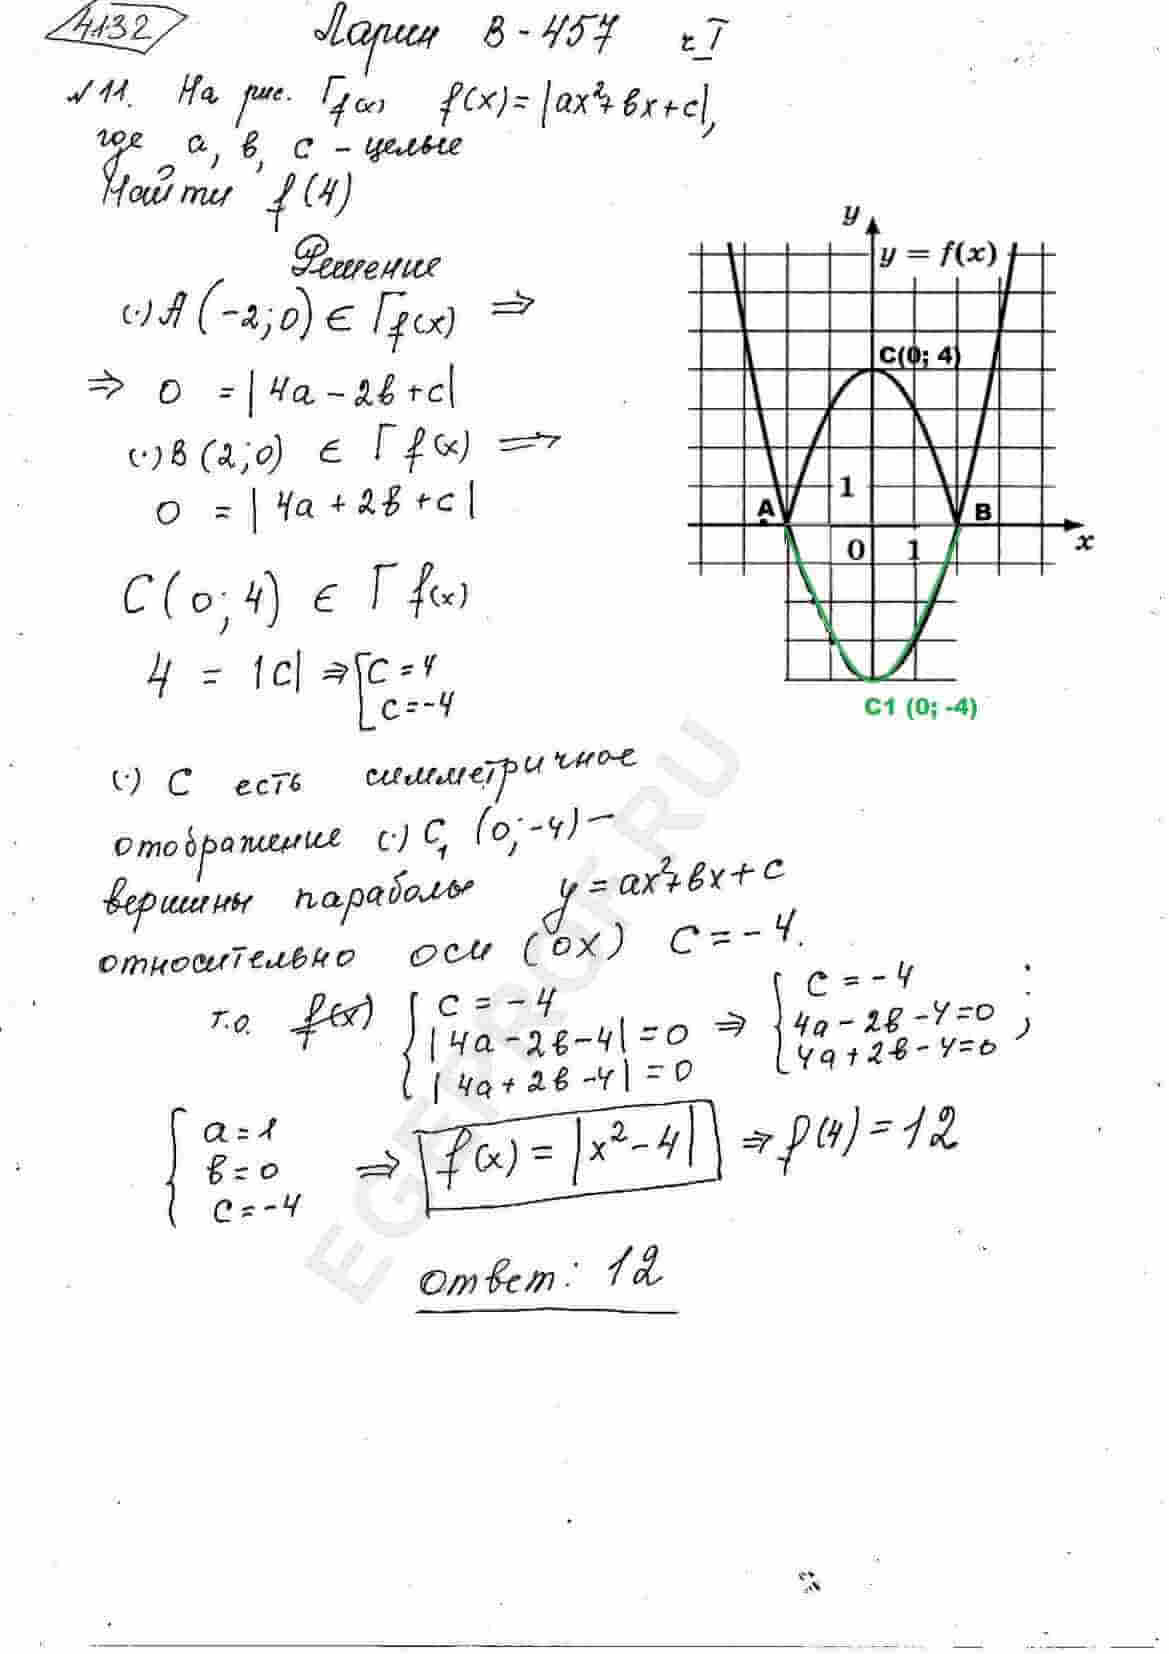 4132 Ларин В-457 ч I
№11. На рис. Гf(x) f(x)=|ax²+вx+c|,
где а, в, с - целые
Найти f(4)
Решение
(·)A(-2;0) ∈ Гf(x) ⇒
⇒ 0 = |4a-2в+c|
(·)B(2;0) ∈ Гf(x) ⇒
0 = |4a+2в+c|
C(0;4) ∈ Гf(x)
4 = |c| ⇒ [c=4
c=-4
y
y = f(x)
C(0; 4)
1
A B
0 1 x
C1 (0; -4)
(·) C есть симметричное
отображение (·) C₁ (0;-4) -
вершины параболы y=ax²+вx+c
относительно оси (ox) c=-4.
т.о. f(x) {c=-4
|4a-2в-4|=0 ⇒
|4a+2в-4|=0
{c=-4
4a-2в-4=0 ;
4a+2в-4=0
{a=1
в=0
c=-4
⇒ f(x)=|x²-4| ⇒ f(4)=12
ответ: 12
EGEPROF.RU